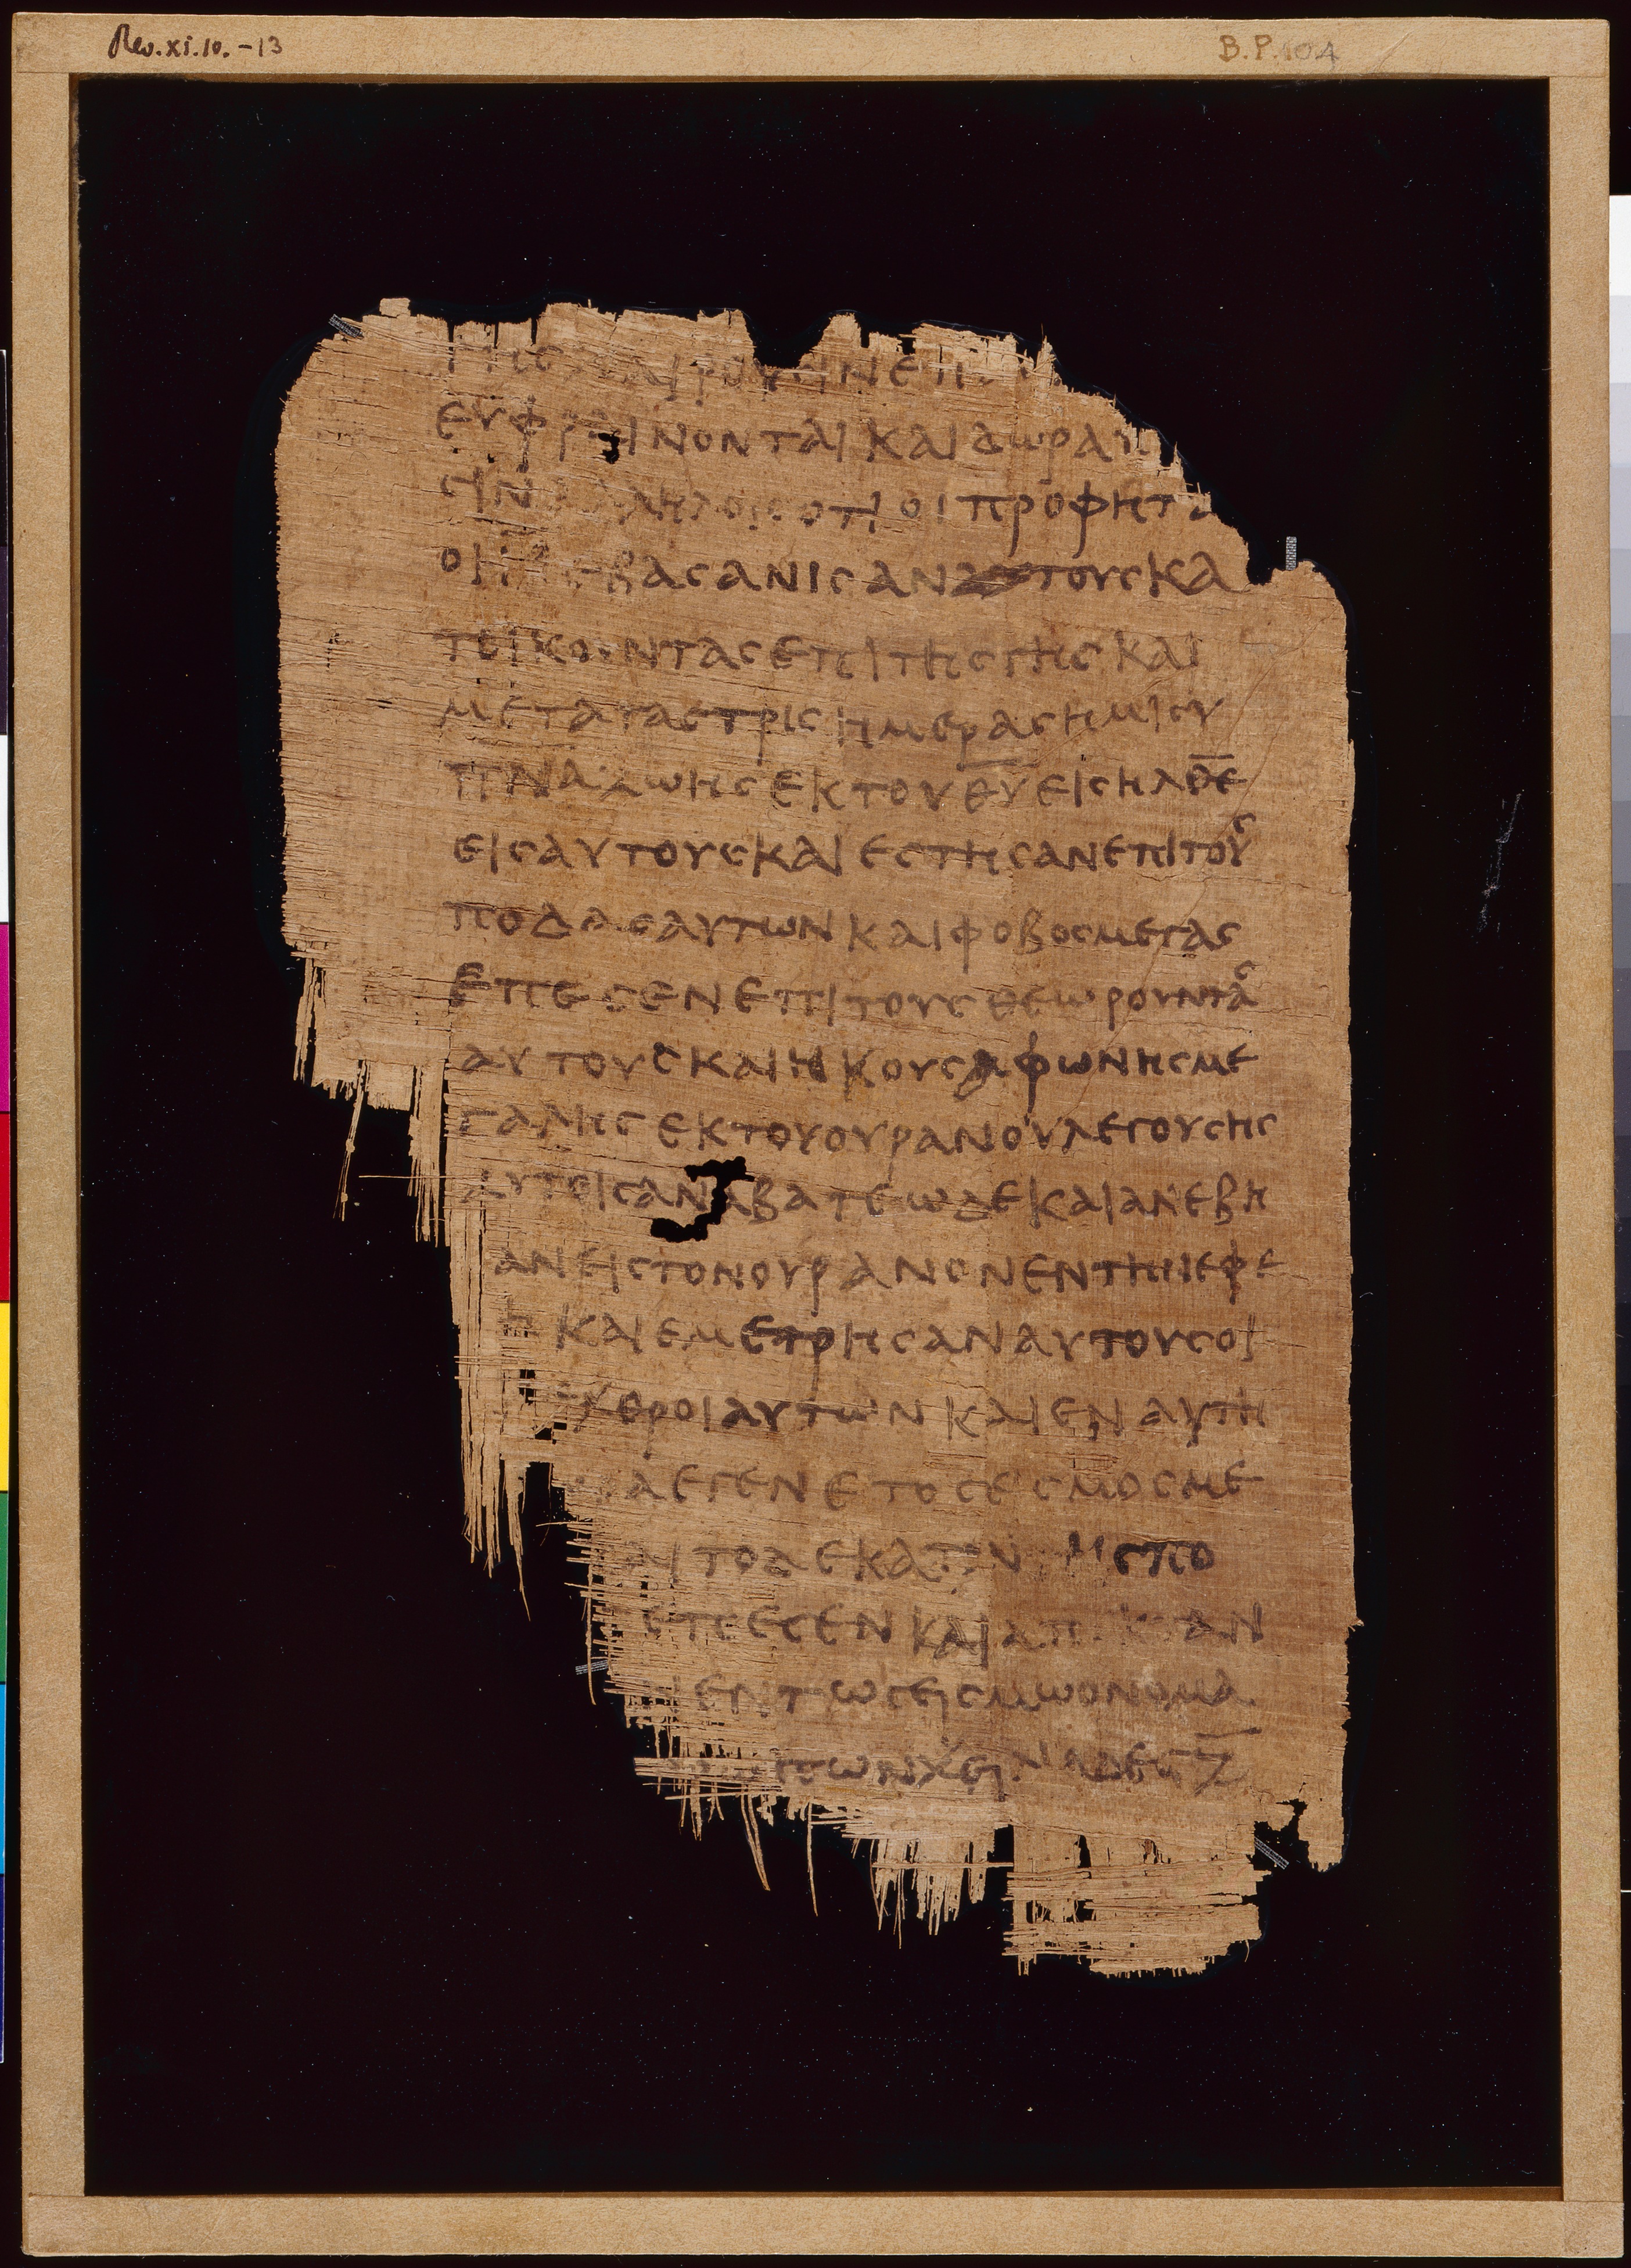 Rev. xi. 10. - 13
B.P.
ΕΥΦΡΑΙΝΟΝΤΑΙ ΚΑΙ ΔΩΡΑ
ΟΤΙ ΟΙ ΠΡΟΦΗΤΑ
ΕΒΑCΑΝΙCΑΝ ΤΟΥC ΚΑ
ΤΟΙΚΟΥΝΤΑC ΕΠΙ ΤΗC ΓΗC ΚΑΙ
ΜΕΤΑ ΤΑC ΤΡΙC ΗΜΕΡΑC ΗΜΙCΥ
Π̅Ν̅Α̅ ΖΩΗC ΕΚ ΤΟΥ Θ̅Υ̅ ΕΙCΗΛΘΕ̅
ΕΙC ΑΥΤΟΥC ΚΑΙ ΕCΤΗCΑΝ ΕΠΙ ΤΟΥC
ΠΟΔΑC ΑΥΤΩΝ ΚΑΙ ΦΟΒΟC ΜΕΓΑC
ΕΠΕCΕΝ ΕΠΙ ΤΟΥC ΘΕΩΡΟΥΝΤΑC
ΑΥΤΟΥC ΚΑΙ ΗΚΟΥCΑ ΦΩΝΗC ΜΕ
ΓΑΛΗC ΕΚ ΤΟΥ ΟΥΡΑΝΟΥ ΛΕΓΟΥCΗC
ΑΥΤΟΙC ΑΝΑΒΑΤΕ ΩΔΕ ΚΑΙ ΑΝΕΒΗ
CΑΝ ΕΙC ΤΟΝ ΟΥΡΑΝΟΝ ΕΝ ΤΗ ΝΕΦΕ
ΚΑΙ ΕΜΕΤΡΗCΑΝ ΑΥΤΟΥC ΟΙ
ΕΧΘΡΟΙ ΑΥΤΩΝ ΚΑΙ ΕΝ ΑΥΤΗ
ΡΑ ΕΓΕΝΕΤΟ CΕΙCΜΟC ΜΕ
ΚΑΙ ΤΟ ΔΕΚΑΤΟΝ ΤΗC ΠΟ
ΕΠΕCΕΝ ΚΑΙ ΑΠΕΚΤΑΝ
ΕΝ ΤΩ CΕΙCΜΩ ΟΝΟΜΑ
ΠΩΝ ΧΕΙΛΙΑΔΕC Ζ̅